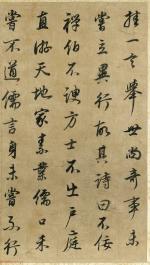 挂一言舉世尚奇事未
嘗立異行故其詩曰不佞
禪伯不諛方士不出戶庭
直游天地家素業儒口未
嘗不道儒言身未嘗不行